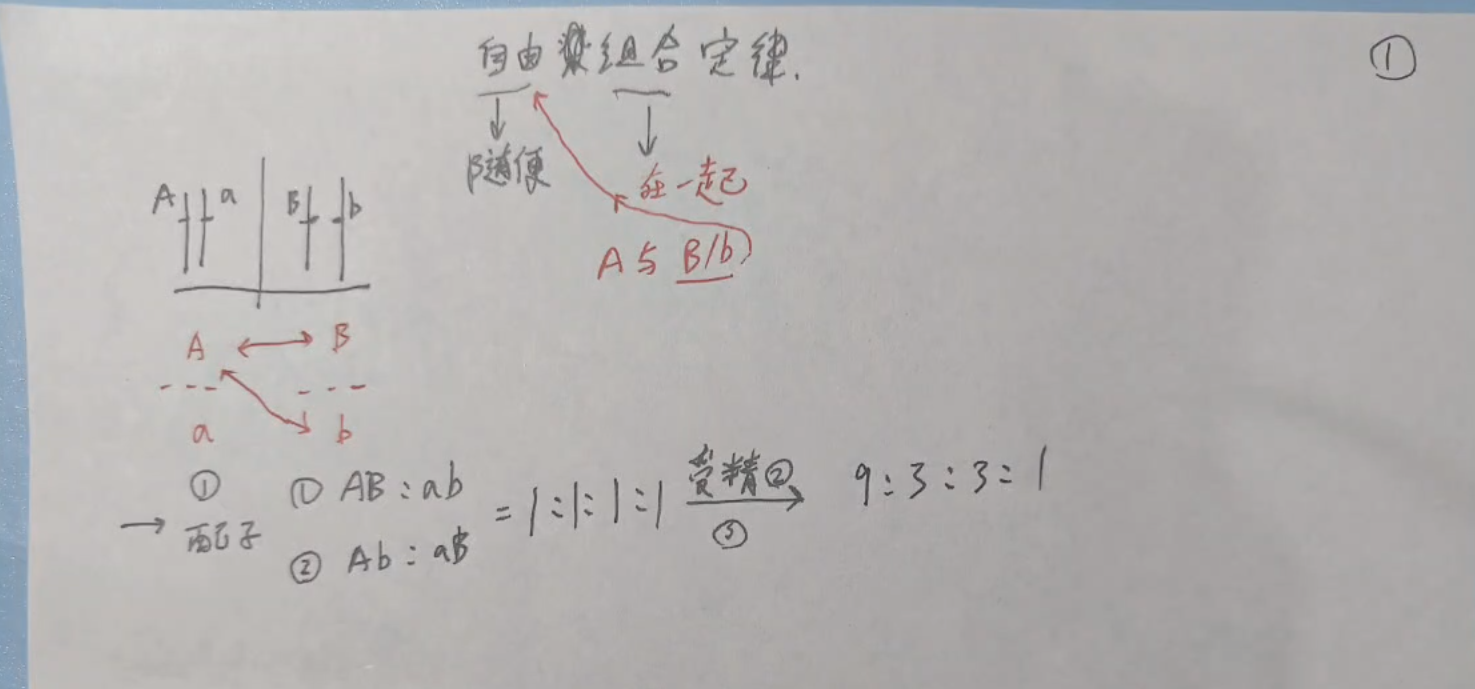 自由组合定律.
①
随便
在一起
A与B/b
A a B b
A B
a b
① ① AB:ab
→配子 ② Ab:aB
=1:1:1:1 受精② 9:3:3:1
③